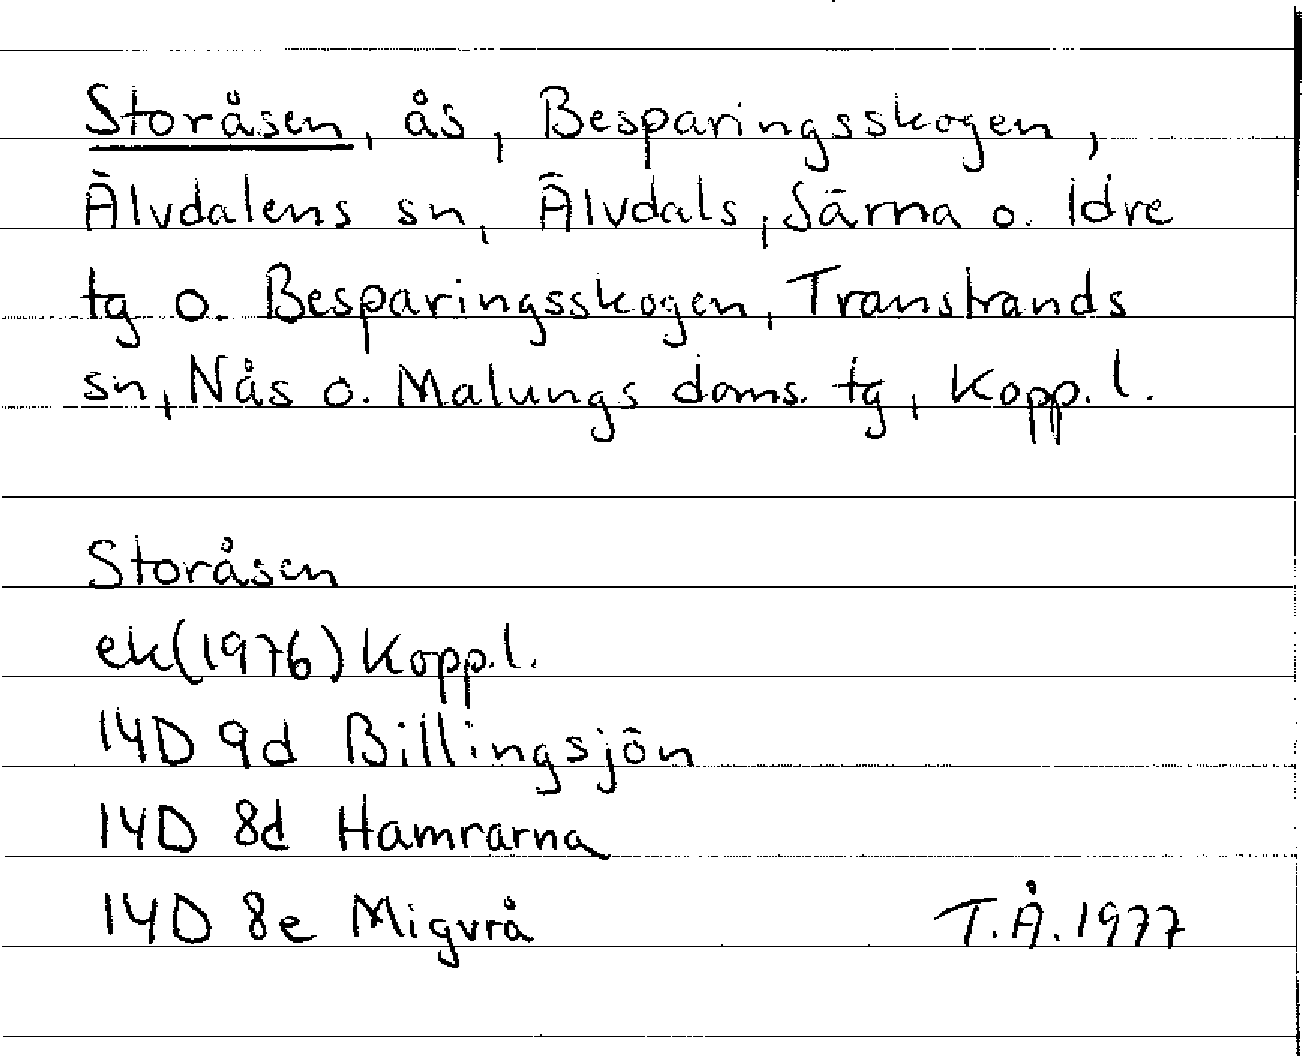 Storåsen, ås, Besparingsskogen,
Älvdalens sn, Älvdals, Särna o. Idre
tg o. Besparingsskogen, Transtrands
sn, Nås o. Malungs doms. tg, Kopp. l.
Storåsen
ek(1976) Kopp.l.
14D 9d Billingsjön
14D 8d Hamrarna
14D 8e Migvrå T.Å. 1977